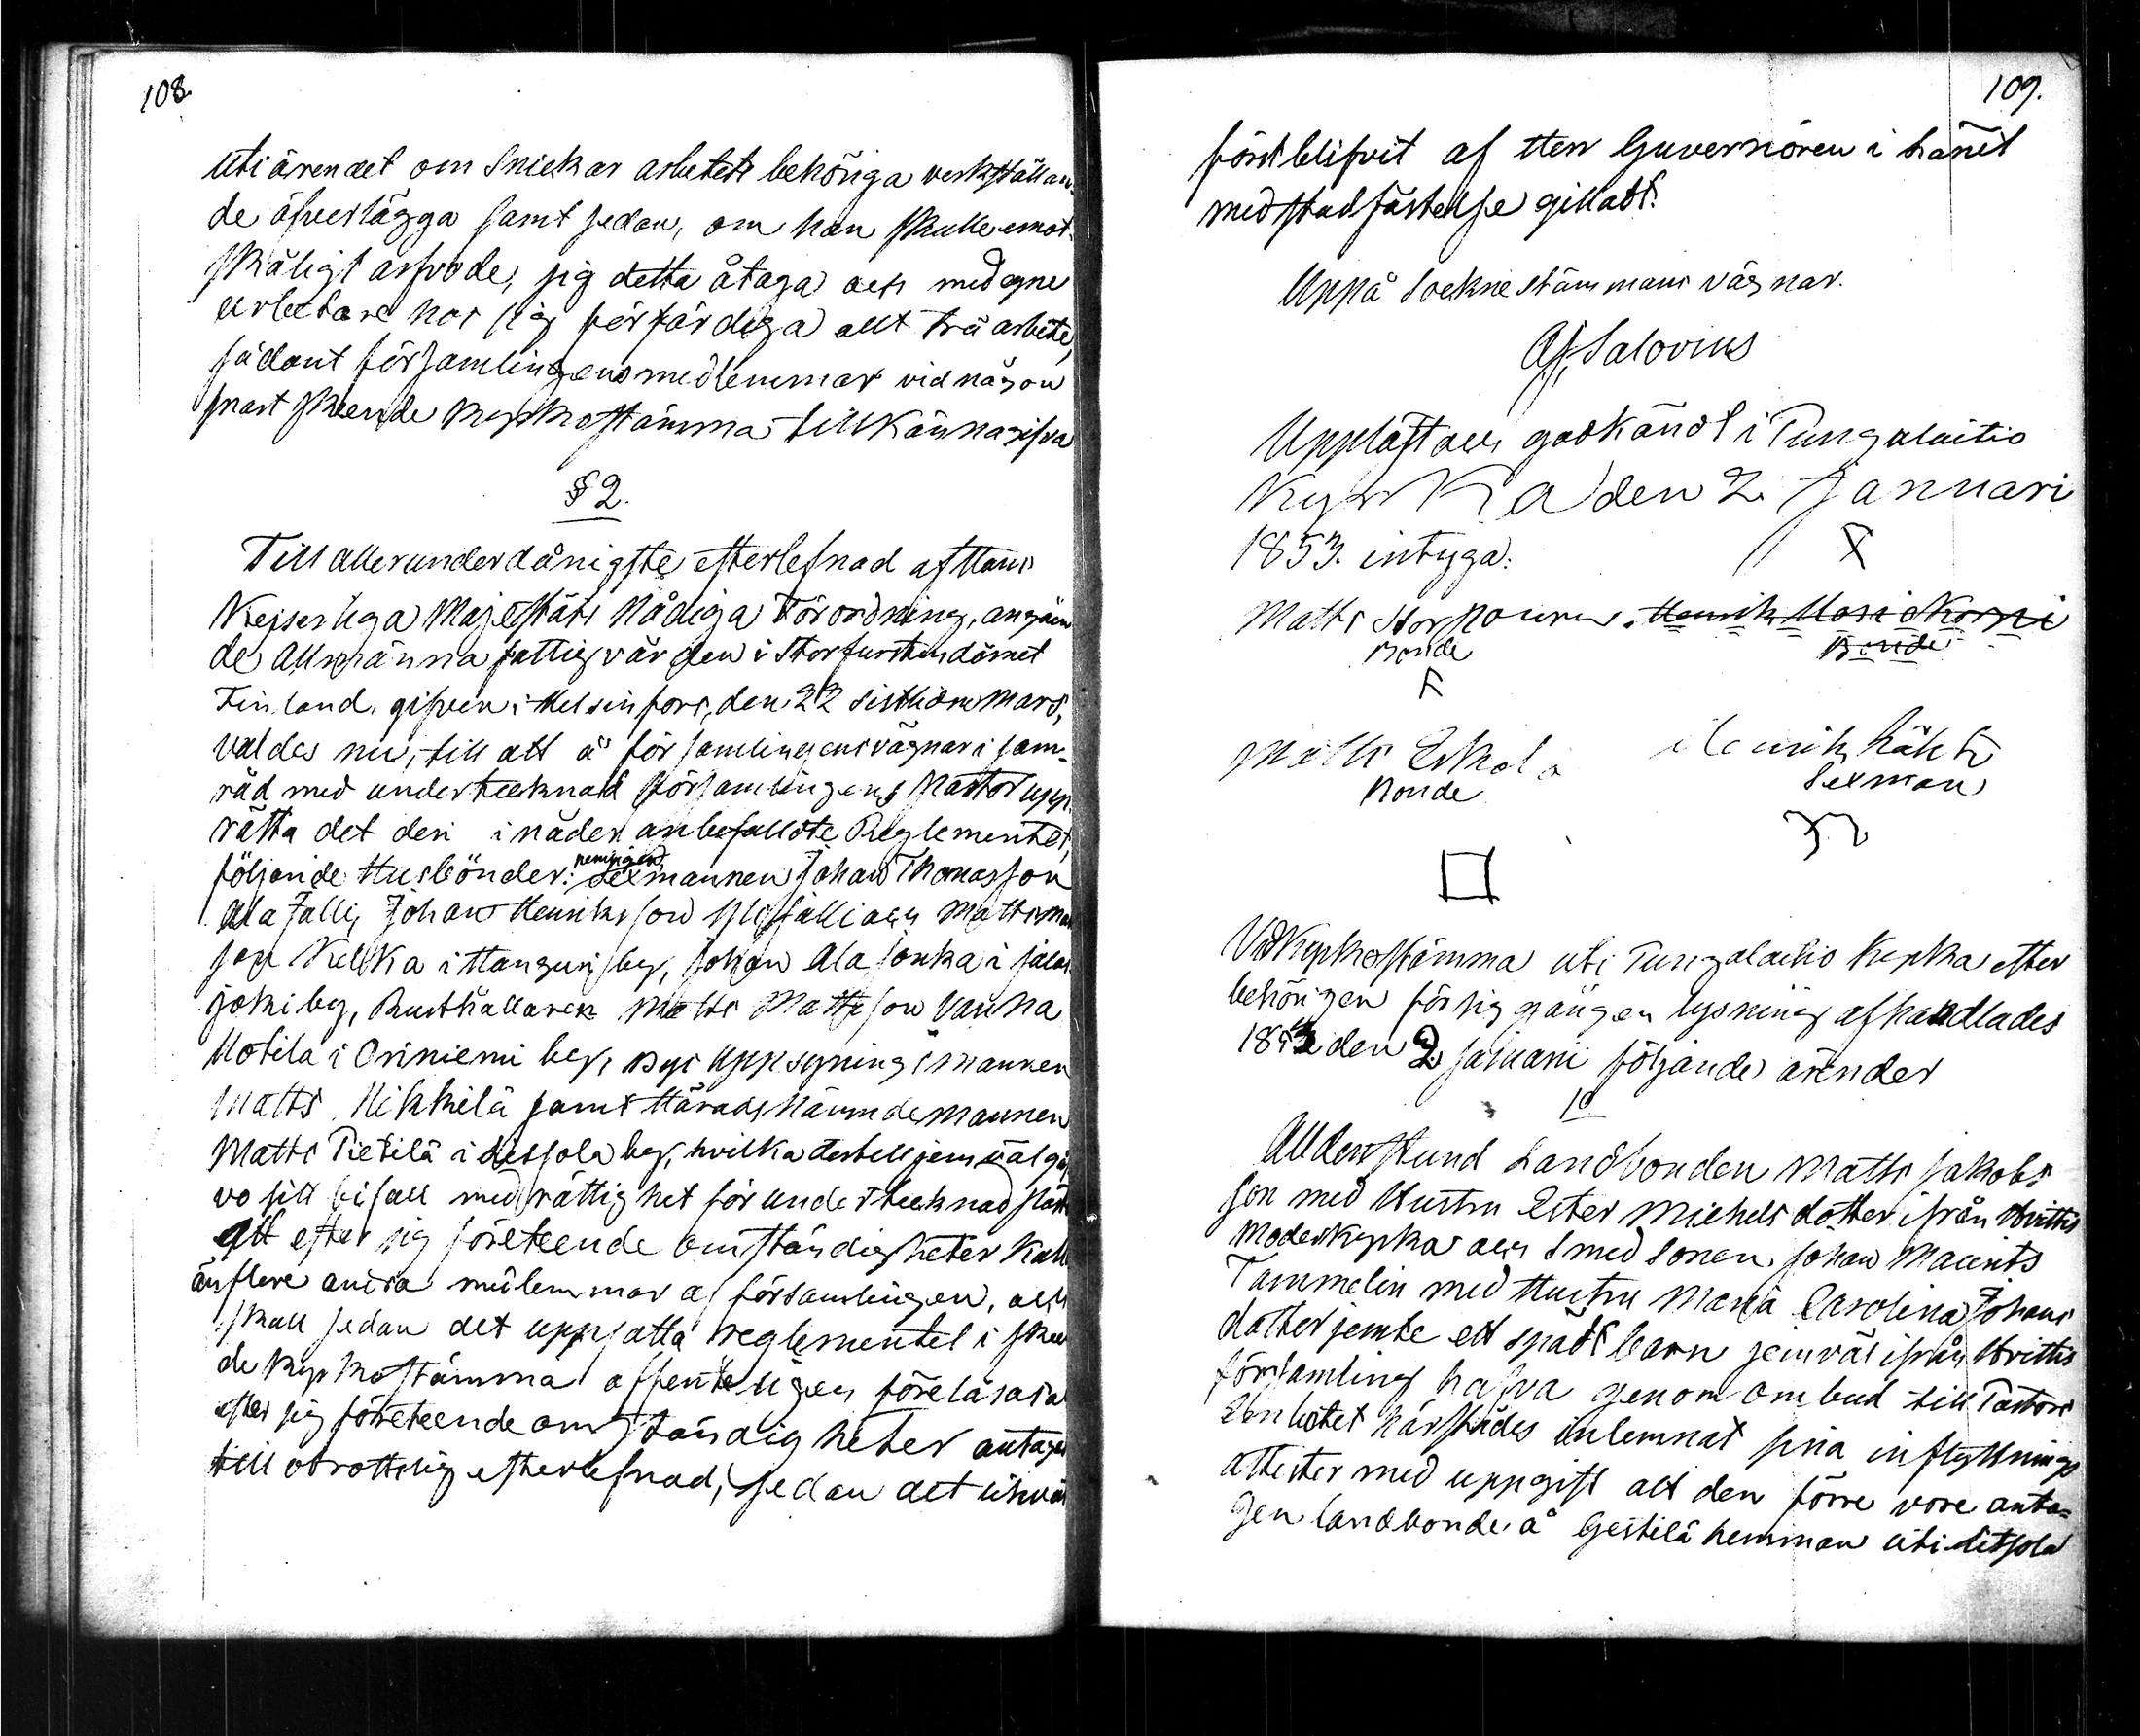 108.
uti ärendet om Snickar arbetets behöriga verkställan-
de öfverlägga samt sedan, om han skulle emot
skäligt arfvode, sig detta åtaga och med egne
arbetare hos sig förfärdiga allt trä arbete,
sådant församlingens medlemmar vid någon
snart skeende Kyrkostämma tillkännagifva
§ 2.
Till allerunderdånigste efterlefnad af Hans
Kejserliga Majestäts Nådiga Förordning, angåen
de Allmänna fattigvården i Storfurstendömet
Finland, gifven i Helsinfors, den 22 sistlidne Mars,
valdes nu, till att å församlingens vägnar i sam-
råd med undertecknad församlingens Pastor upp
rätta det deri i nåder anbefallde Reglementet,
följande Husbönder: Sexmannen Johan Thomasson
Ala Jalli, Johan Henriksson Ylisjälli och Matts Mats
son Kelkka i Hangurif by, Johan Ala Jouka i Jalas
joki by, Rusthållaren Matts Mattsson Vanha
Uotila i Oriniemi by, Byi Uppsynings mannen
Matts Mikkilä samt Härads Nämndemannen
Matts Pietilä i Letsola by, hvilka dertill jemväl gåf
vo sitt bifall med rättighet för undertecknad Pastor
att efter sig företeende omständigheter kalla
än flere andra medlemmar af församlingen, och
skall sedan det uppsatta reglementet i skeen
de Kyrkostämma offenteligen föreläsas a
efter sig företeende omständigheter antagas
till obrottslig efterlefnad, sedan det likväl
109.
först blifvit af Herr Guvernören i Länet
med stadfästelse gilladt.
Uppå Sockne stämmans vägnar.
Af. Salovius
Uppläst och godkändt i Pungalaitio
Kyrka den 2. Januari
1853. intyga:
Matts Storpouru. Henrik Uosi Korpi
Bonde Bonde
Matts Eskola Henrik Lähte
Bonde Sexman
Vid Kyrkostämma uti Pungalaitio Kyrka efter
behörigen försiggången lysning afhandlades
1853 den 2 Januari följande ärender
1o
Alldenstund Landbonden Matts Jakobs
son med Hustru Ester Michelsdotter ifrån Hvittis
Moderkyrka och Smed Sonen Johan Maunits
Tammelin med Hustru Maria Carolina Johans
dotter jemte ett spädt barn jemväl ifrån Hvittis
församling hafva genom ombud till Pastors
Embetet härstädes inlemnat sina inflyttnings
attester med uppgift att den förre vore anta=
gen landbonde å Gestilä hemman uti Letsola